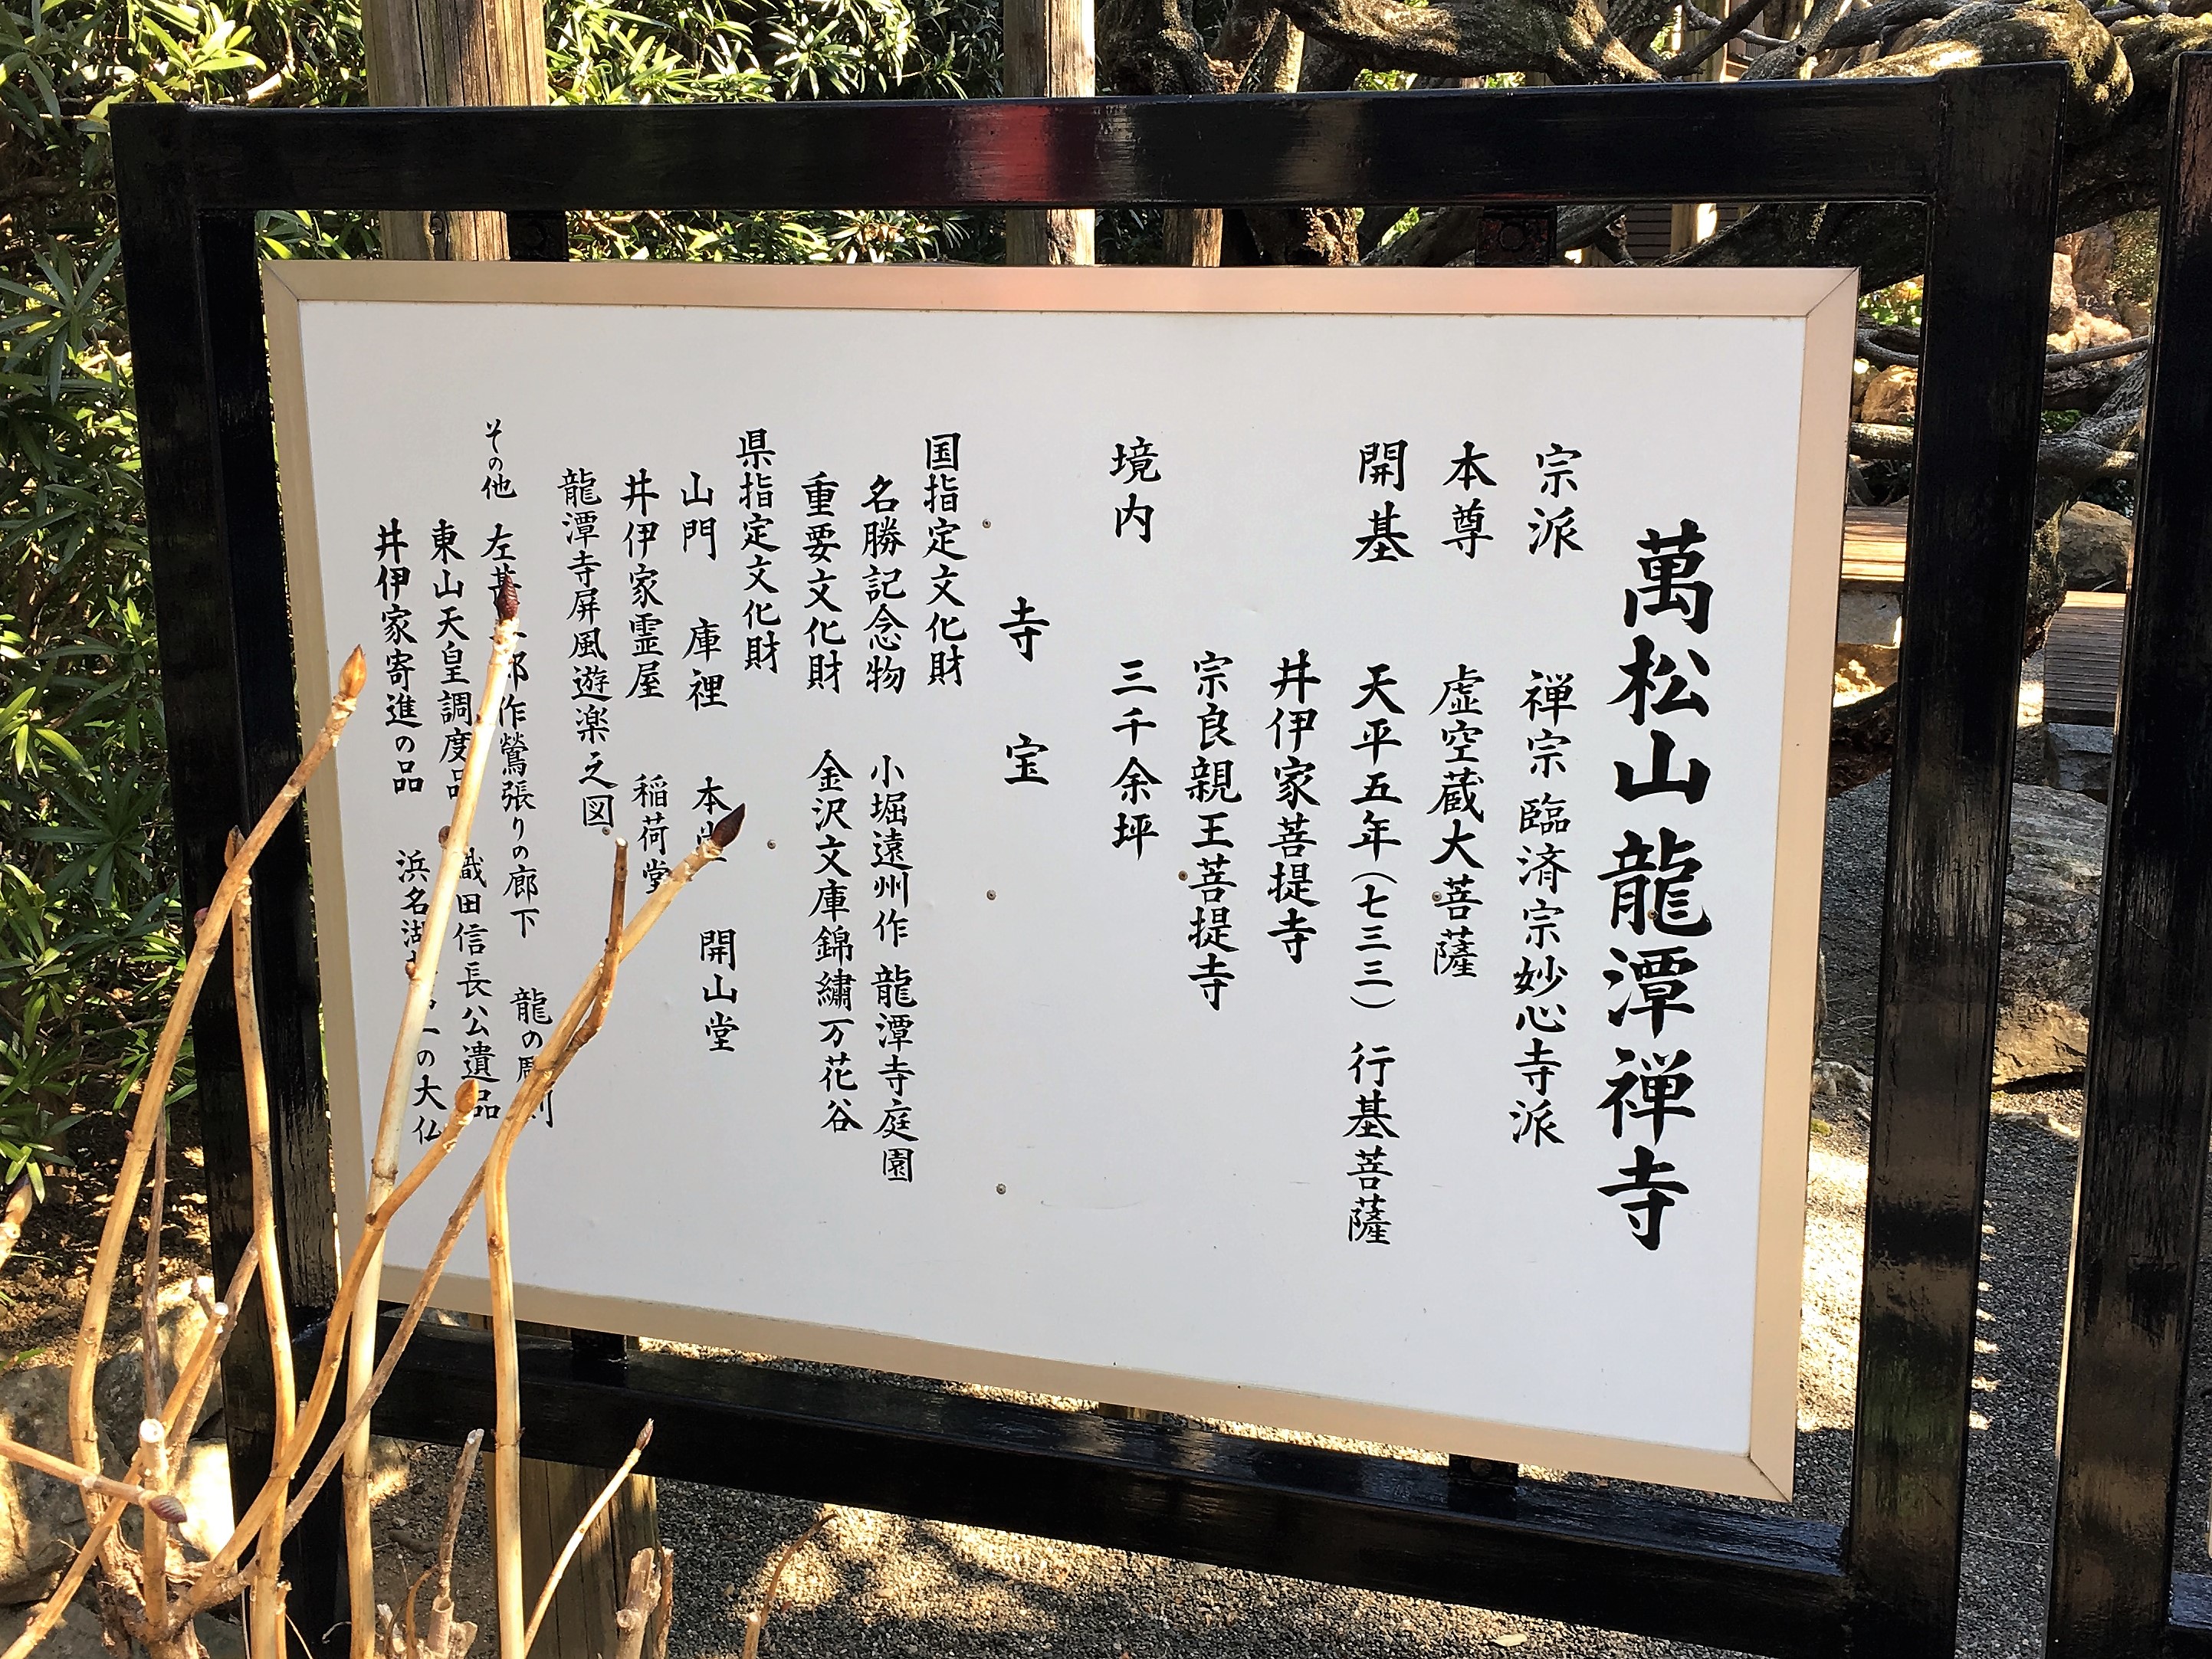 萬松山龍潭禅寺
宗派 禅宗 臨済宗妙心寺派
本尊 虚空蔵大菩薩
開基 天平五年(七三三) 行基菩薩
井伊家菩提寺
宗良親王菩提寺
境内 三千余坪
寺宝
国指定文化財
名勝記念物 小堀遠州作 龍潭寺庭園
重要文化財 金沢文庫錦繡万花谷
県指定文化財
山門 庫裡 本堂 開山堂
井伊家霊屋 稲荷堂
龍潭寺屏風遊楽之図
その他 左甚 郎作鶯張りの廊下 龍の彫刻
東山天皇調度品 織田信長公遺品
井伊家寄進の品 浜名湖 一の大仏